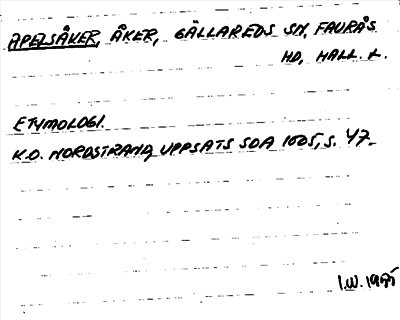 APELSÅKER, ÅKER, GÄLLAREDS SN, FAURÅS
HD, HALL. L.
ETYMOLOGI.
K.O. NORDSTRAND, UPPSATS SOA 1605, S. 47.
I.W. 1975